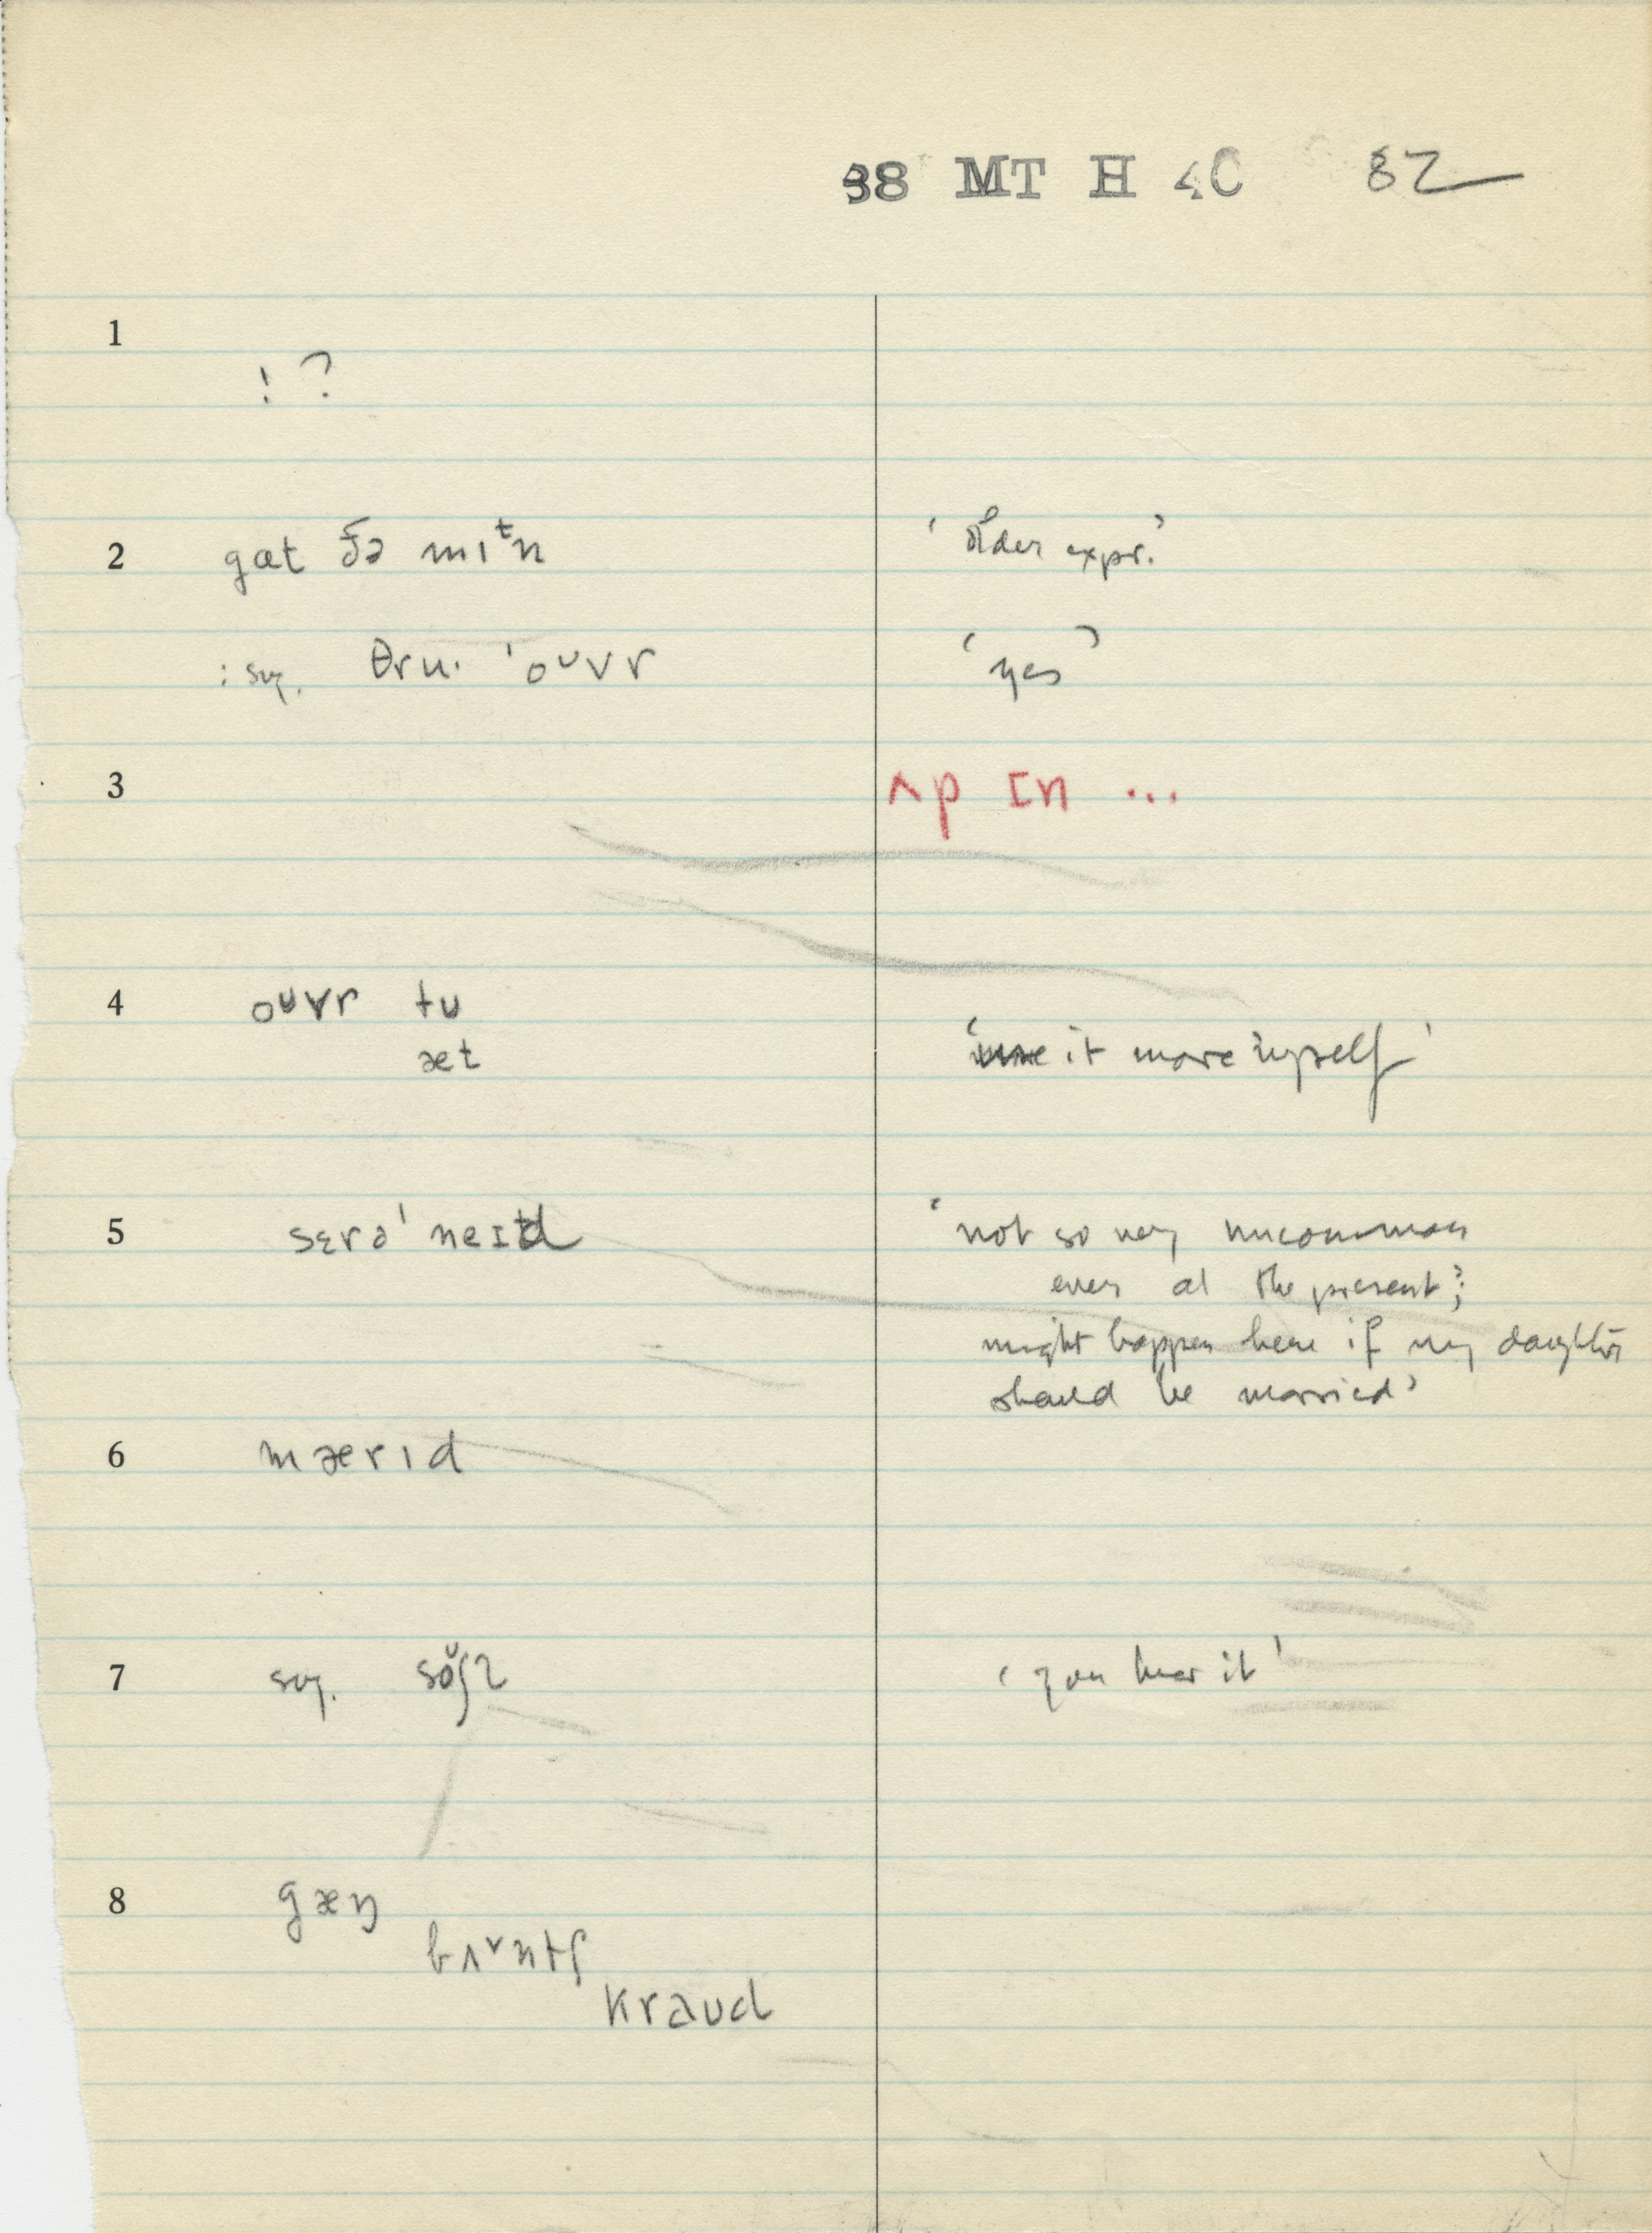 38 MT H 4C 82
1
! ?
2 gɑt ðə mɪᵗn ‘older expr.’
: sg. θru· ˈoᴜvr ‘yes’
3 ʌp ɪn ...
4 oᴜvr tu
æt ‘use it more myself’
5 sɛrəˈneɪd ‘not so very uncommon
even at the present;
might happen here if my daughter
should be married’
6 mærɪd
7 sg. ‘you hear it’
8 gæŋ
bʌ˅ntʃ
kraud